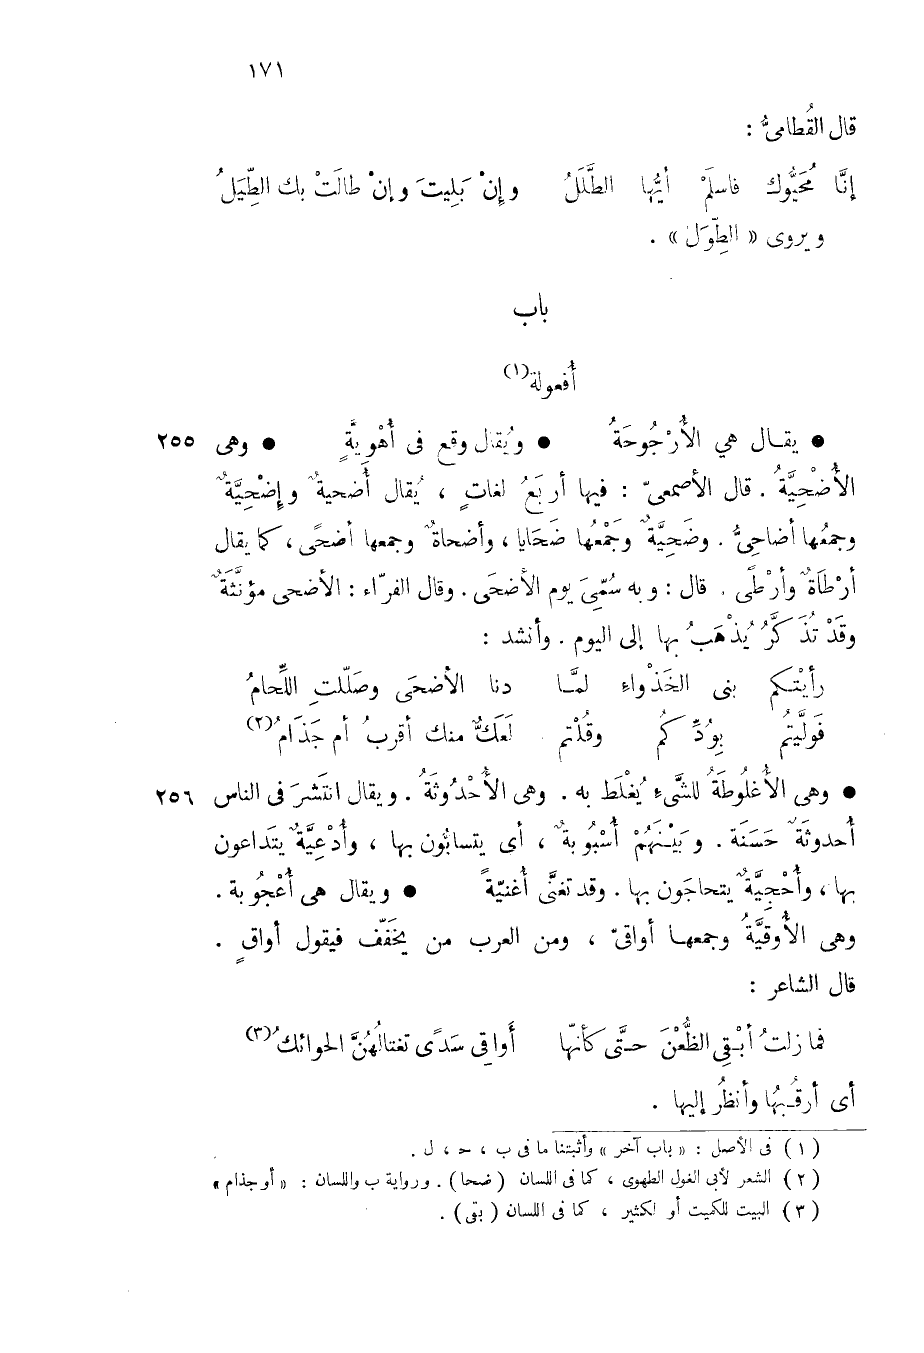 ١٧١
قال القُطامىُّ :
إنَّا مُحَيُّوك فاسلَمْ أيُّها الطَّلَلُ وإنْ بَلِيتَ وإنْ طالَتْ بك الطِّيَلُ
ويروى « الطِّوَل » .
باب
أُفعولة(١)
● يقـال هي الأُرْجُوحَةُ ● ويُقال وقع فى أُهْوِيَّةٍ ● وهى ٢٥٥
الأُضْحِيَّةُ . قال الأصمعىّ : فيها أربَعُ لغاتٍ ، يُقال أُضحيةٌ وإضْحِيَّةٌ
وجمعُها أضاحِىُّ . وضَحِيَّةٌ وجَمْعُها ضَحَايا ، وأضحاةٌ وجمعها أضحًى ، كما يقال
أرْطَاةٌ وأرْطًى . قال : وبه سُمِّىَ يوم الأضْحَى . وقال الفرّاء : الأضحى مؤنَّثَةٌ
وقَدْ تُذَكَّرُ يُذْهَبُ بها إلى اليوم . وأنشد :
رأيْتـكم بنى الخَذْواءِ لمَّـا دنا الأضحَى وصَلَّلتِ اللِّحامُ
فَوَلَّيتُم بِوُدِّكُم وقُلْتم لَعَكٌّ منك أقربُ أم جَذَامُ(٢)
● وهى الأُغلُوطَةُ للشَّىءِ يُغْلَط به . وهى الأُحْدُوثَةُ . ويقال انتَشرَ فى الناس ٢٥٦
أُحدوثَةٌ حَسَنَة . وبَيْـنَهُمْ أُسْبُوبةٌ ، أى يتسابُّون بها ، وأُدْعِيَّةٌ يتَداعون
بها ، وأُحْجِيَّةٌ يتحاجَون بها . وقد تغنَّى أُغنيّةً ● ويقال هى أُعْجُوبة .
وهى الأُوقيَّةُ وجمعهـا أواقىّ ، ومن العرب من يخَفّف فيقول أواقٍ .
قال الشاعر :
فما زلتُ أبْـقِى الظُّعْنَ حـتَّى كأنّها أَواقِى سَدًى تغتالُهُنَّ الحوائكُ(٣)
أى أرقُـبُها وأنظُر إليها .
(١) فى الأصل : « باب آخر » وأثبتنا ما فى ب ، حـ ، ل .
(٢) الشعر لأبى الغول الطهوى ، كما فى اللسان (ضحا) . ورواية ب واللسان : « أو جذام »
(٣) البيت للكميت أو لكثير ، كما فى اللسان (بقى) .